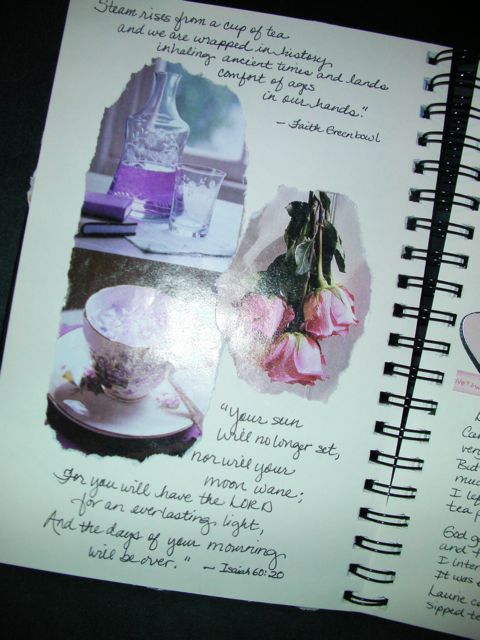 Steam rises from a cup of tea
and we are wrapped in history,
inhaling ancient times and lands
comfort of ages
in our hands."
— Faith Greenbowl
"Your sun
will no longer set,
nor will your
moon wane;
For you will have the LORD
for an everlasting light,
And the days of your mourning
will be over." — Isaiah 60:20
But
muc
I le
tea p
God g
and t
I inter
It was
Laurie c
sipped te